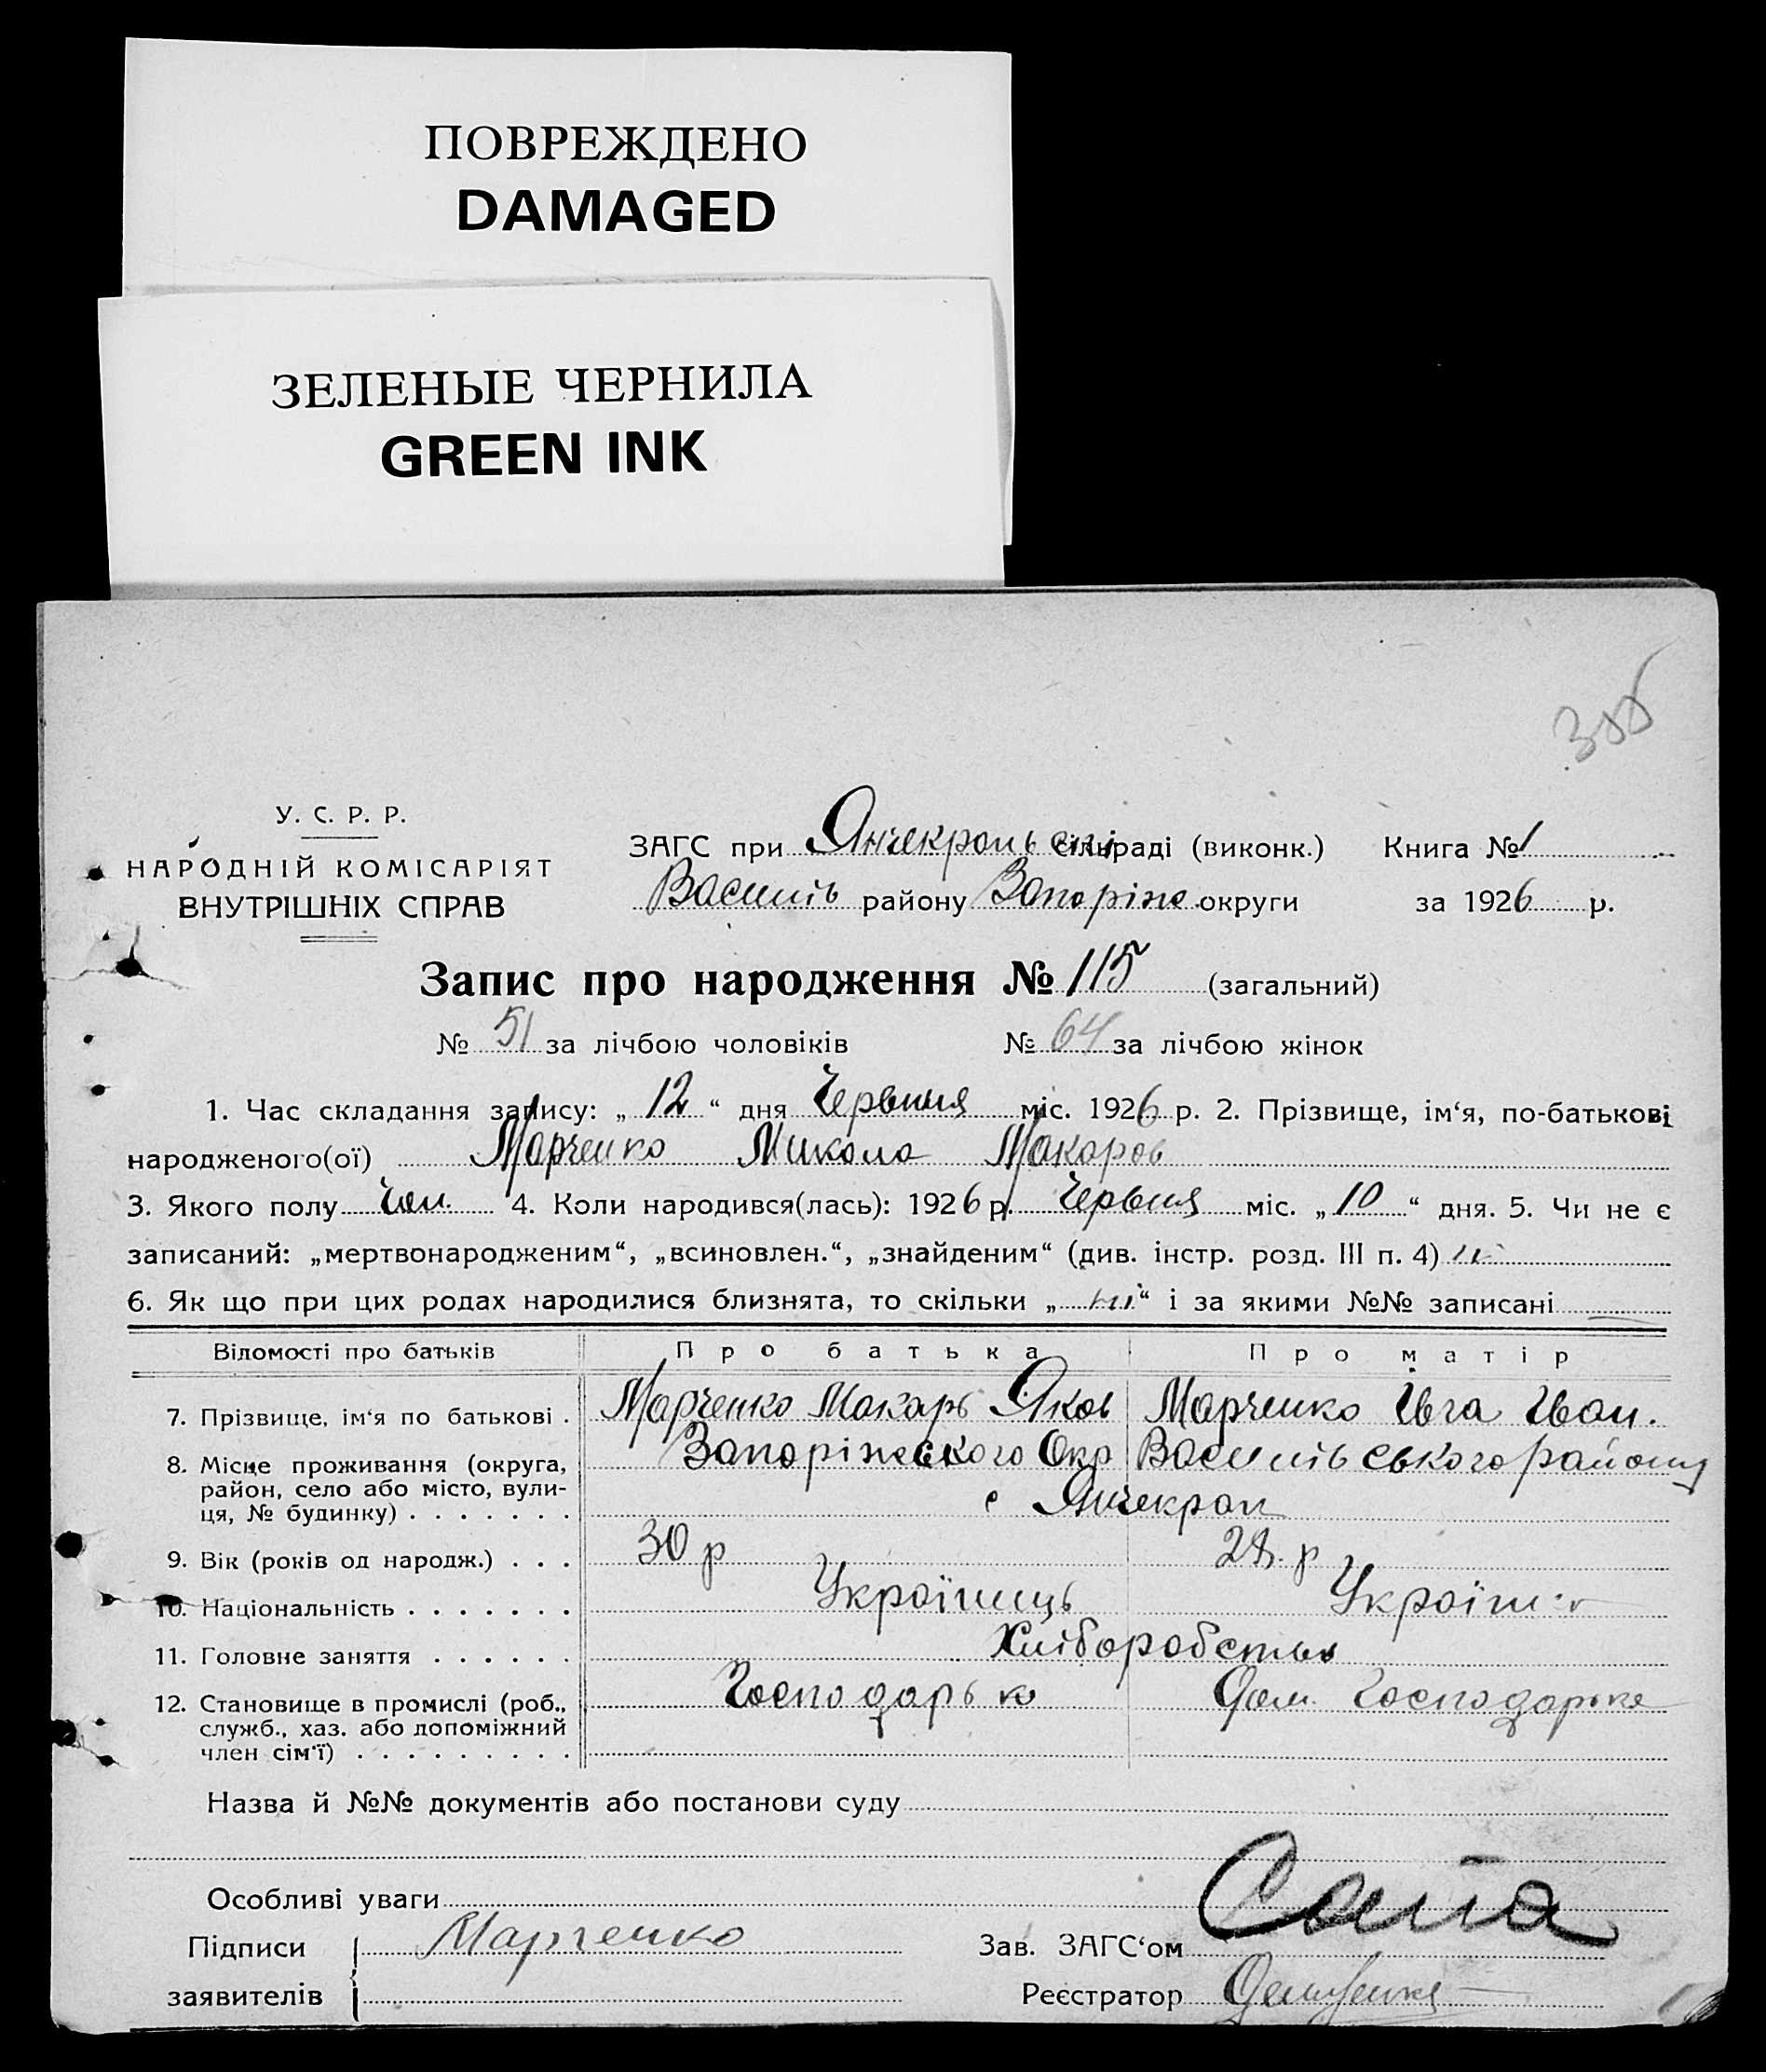 ПОВРЕЖДЕНО
DAMAGED
ЗЕЛЕНЫЕ ЧЕРНИЛА
GREEN INK
У. С. Р. Р.
НАРОДНІЙ КОМІСАРІЯТ
ВНУТРІШНІХ СПРАВ
ЗАГС при Янчекропьскі сільраді (виконк.) Книга № 1
Василів району Запоріж. округи за 1926 р.
Запис про народження № 115 (загальний)
№ 51 за лічбою чоловіків № 64 за лічбою жінок
1. Час складання запису: „ 12 “ дня Червня міс. 1926 р. 2. Прізвище, ім‘я, по-батькові
народженого(ої) Марченко Микола Макаров
3. Якого полу Чол. 4. Коли народився(лась): 1926 р. Червня міс. „ 10 “ дня. 5. Чи не є
записаний: „мертвонародженим“, „всиновлен.“, „знайденим“ (див. інстр. розд. III п. 4)
6. Як що при цих родах народилися близнята, то скільки „ ні “ і за якими №№ записані
Відомості про батьків Про батька Про матір
7. Прізвище, ім‘я по батькові . Марченко Макарь Яков Марченко Івга Іван.
8. Місце проживання (округа, Запоріжського Окр Василівського району
район, село або місто, вули- с Янчекрап
ця, № будинку) . . . . . . .
9. Вік (років од народж.) . . . 30 р 28. р
10. Національність . . . . . . . Українець Україн
11. Головне заняття . . . . . . Хліборобство
12. Становище в промислі (роб., Господарь Дом. Господарька
служб., хаз. або допоміжний
член сім‘ї) . . . . . . . . .
Назва й №№ документів або постанови суду
Особливі уваги
Підписи Марченко Зав. ЗАГС‘ом
заявителів Реєстратор